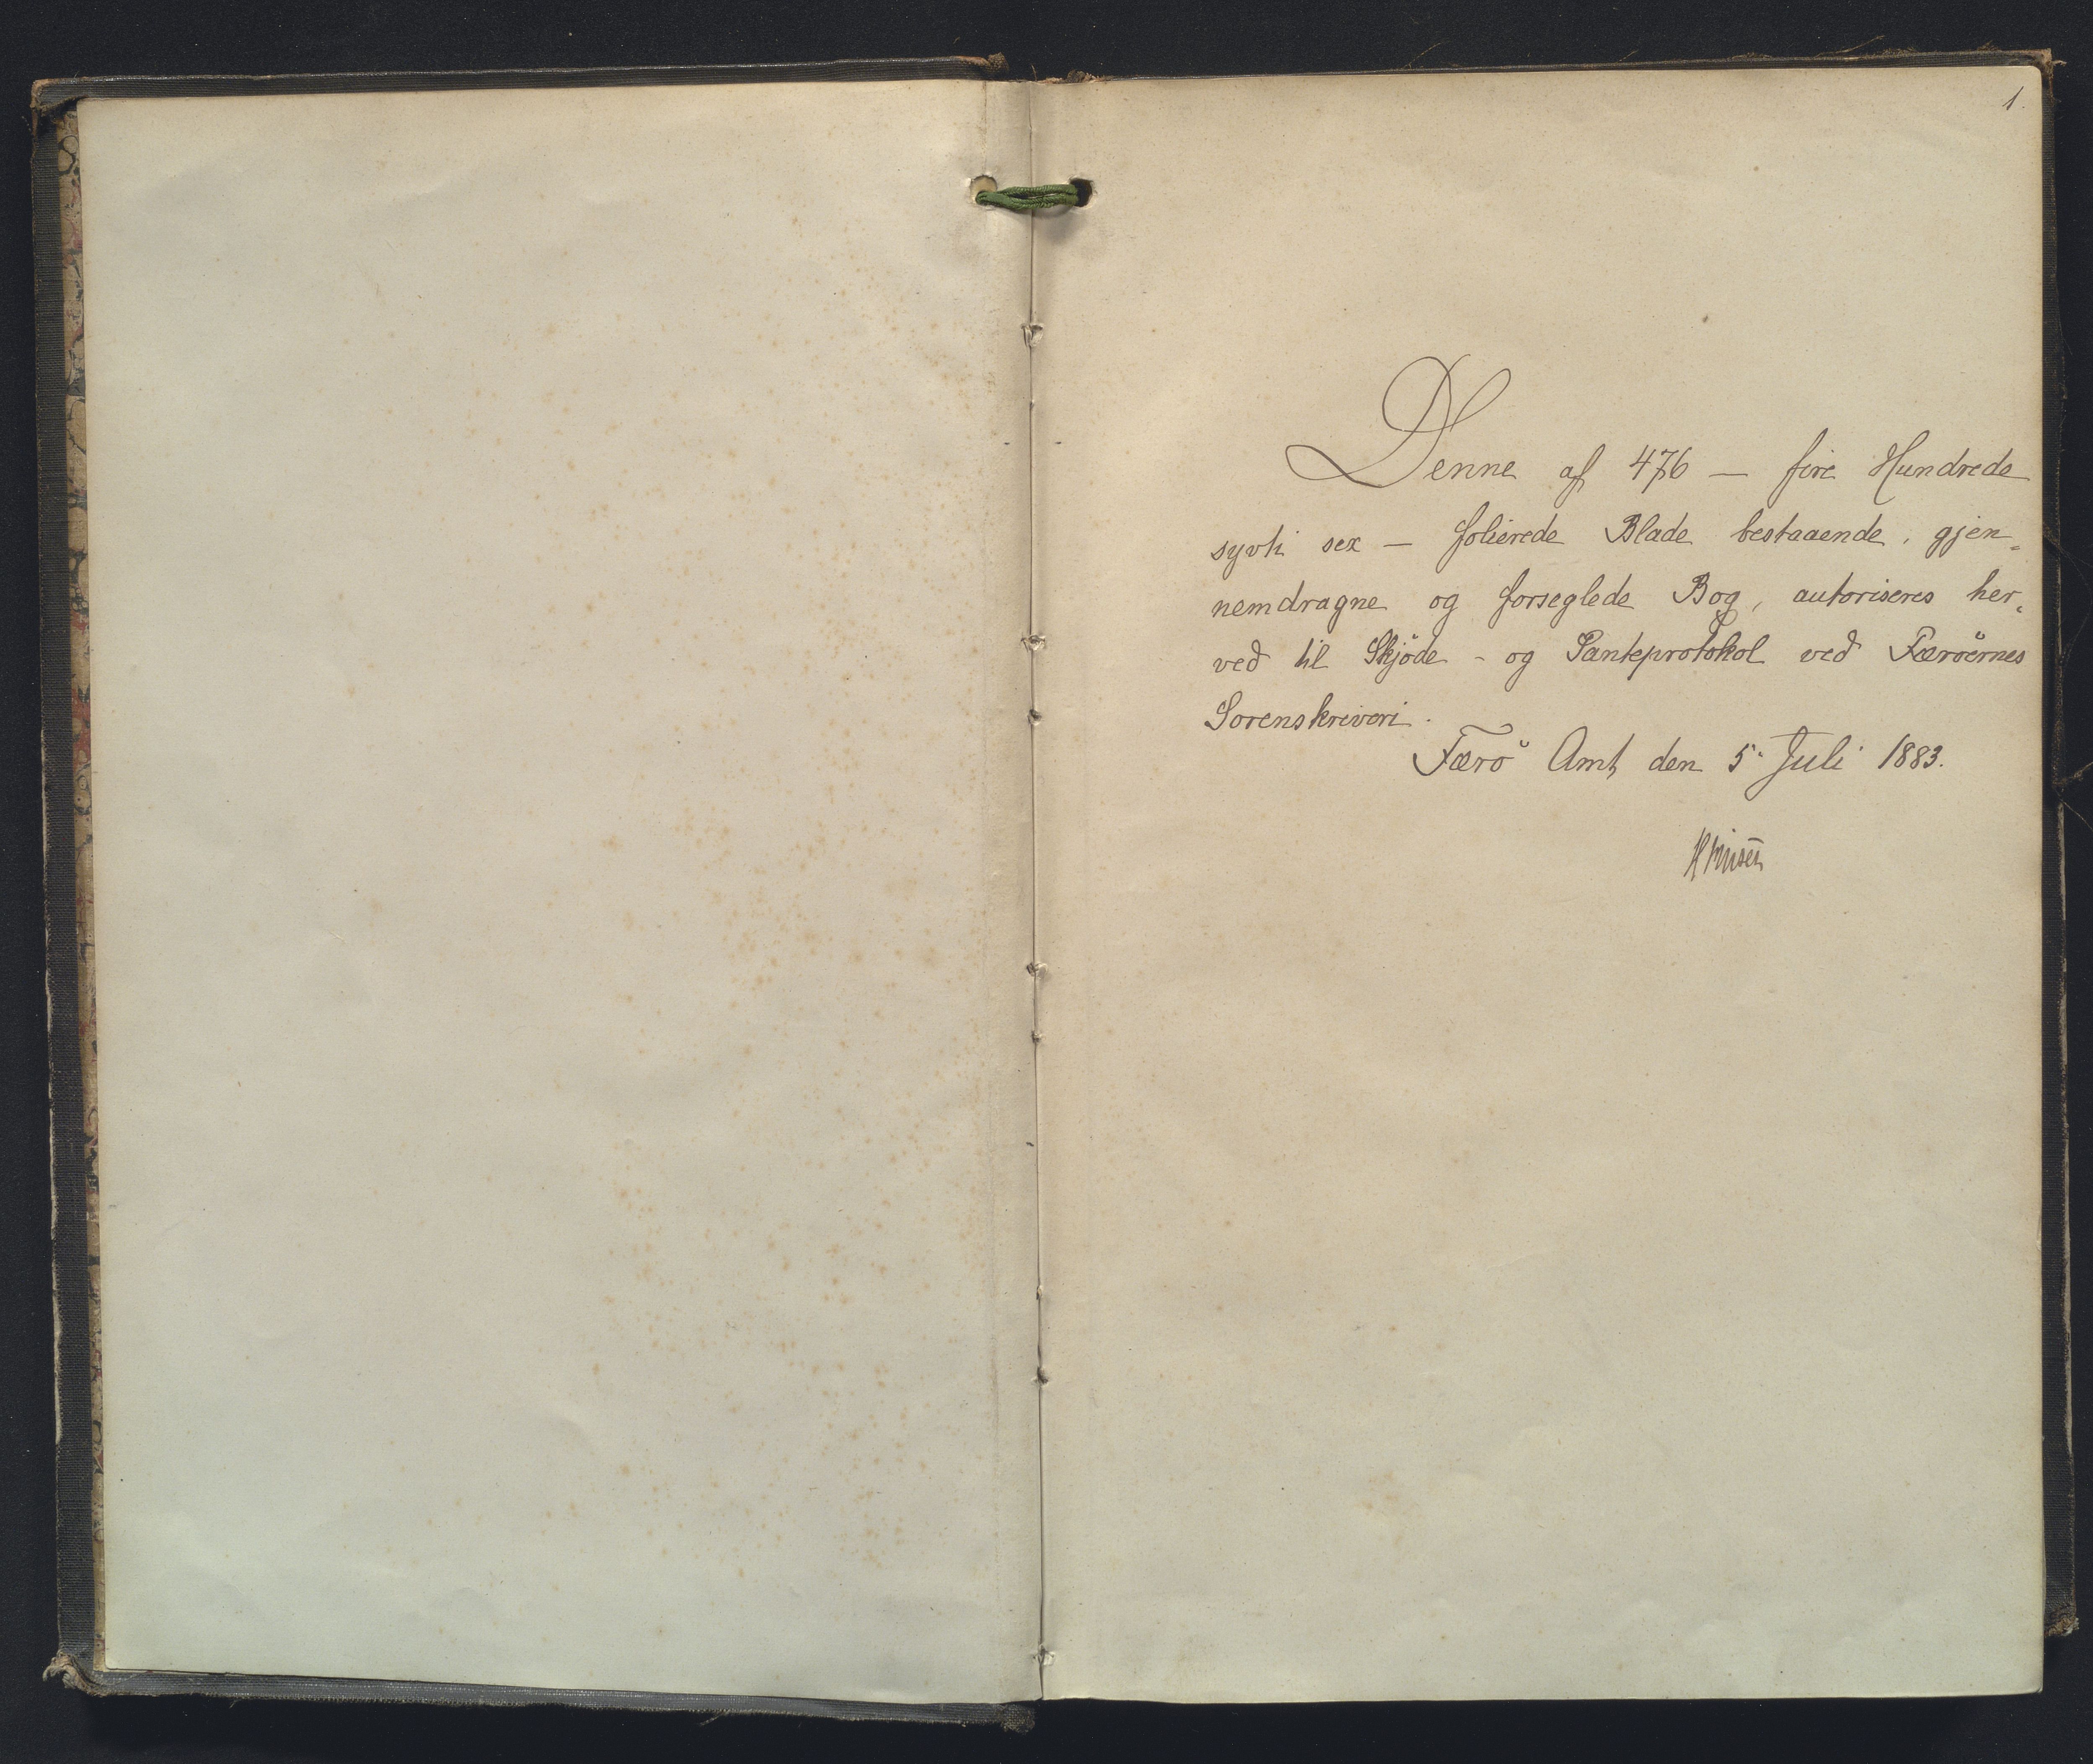 1.
Denne af 476 — fire Hundrede
syvti sex — folierede Blade bestaaende, gjen=
nemdragne og forseglede Bog, autoriseres her=
ved til Skjöde - og Panteprotokol ved Færöernes
Sorenskriveri.
Færö Amt, den 5' Juli 1883.